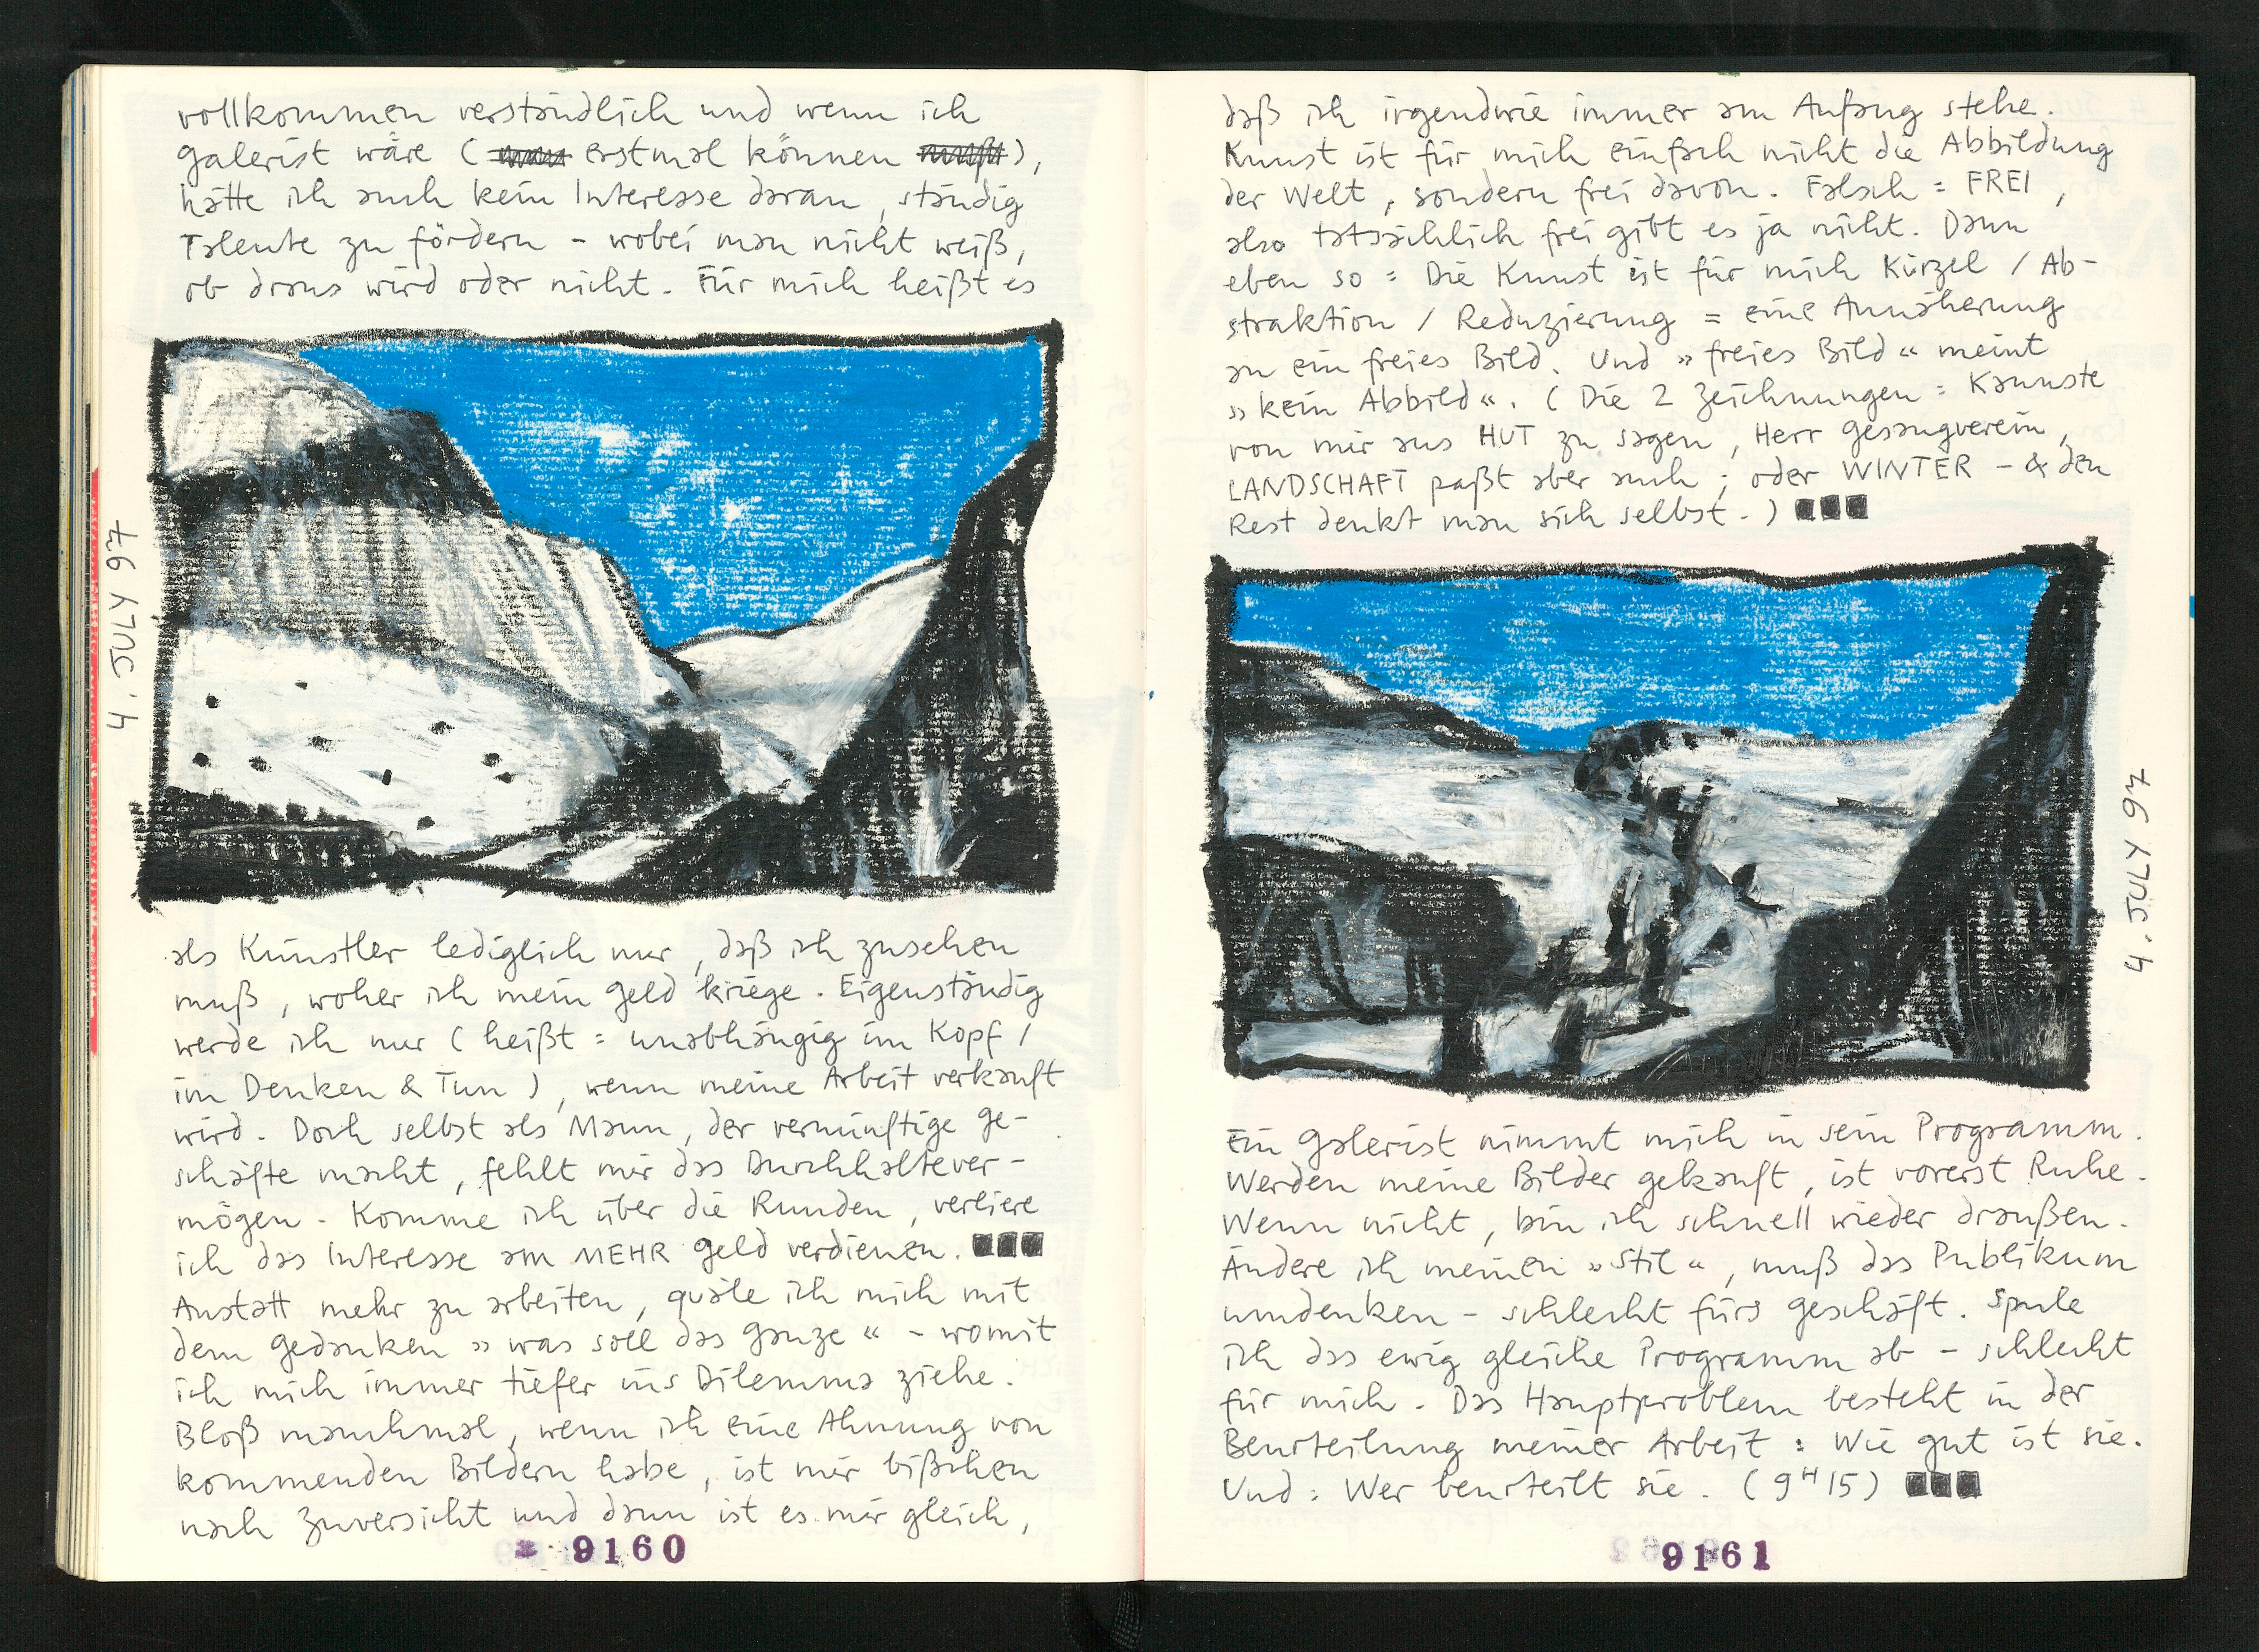 vollkommen verständlich und wenn ich
Galerist wäre ( erstmal können ),
hätte ich auch kein Interesse daran, ständig
Talente zu fördern - wobei man nicht weiß,
ob draus wird oder nicht. Für mich heißt es
4. JULY 97
als Künstler lediglich nur, daß ich zusehen
muß, woher ich mein Geld kriege. Eigenständig
werde ich nur ( heißt = unabhängig im Kopf /
im Denken & Tun ), wenn meine Arbeit verkauft
wird. Doch selbst als Mann, der vernünftige Ge-
schäfte macht, fehlt mir das Durchhaltever-
mögen. Komme ich über die Runden, verliere
ich das Interesse am MEHR Geld verdienen.
Anstatt mehr zu arbeiten, quäle ich mich mit
dem Gedanken » was soll das Ganze « - womit
ich mich immer tiefer ins Dilemma ziehe.
Bloß manchmal, wenn ich eine Ahnung von
kommenden Bildern habe, ist mir bißchen
nach Zuversicht und dann ist es mir gleich,
9160
daß ich irgendwie immer am Anfang stehe.
Kunst ist für mich einfach nicht die Abbildung
der Welt, sondern frei davon. Falsch = FREI,
also tatsächlich frei gibt es ja nicht. Dann
eben so = Die Kunst ist für mich Kürzel / Ab-
straktion / Reduzierung = eine Annäherung
an ein freies Bild. Und » freies Bild « meint
» kein Abbild «. ( Die 2 Zeichnungen = Kannste
von mir aus HUT zu sagen, Herr Gesangverein,
LANDSCHAFT paßt aber auch ; oder WINTER - & den
Rest denkt man sich selbst. )
4. JULY 97
Ein Galerist nimmt mich in sein Programm.
Werden meine Bilder gekauft, ist vorerst Ruhe.
Wenn nicht, bin ich schnell wieder draußen.
Ändere ich meinen » Stil «, muß das Publikum
umdenken - schlecht fürs Geschäft. Spule
ich das ewig gleiche Programm ab - schlecht
für mich. Das Hauptproblem besteht in der
Beurteilung meiner Arbeit : Wie gut ist sie.
Und : Wer beurteilt sie. ( 9 H 15 )
9161